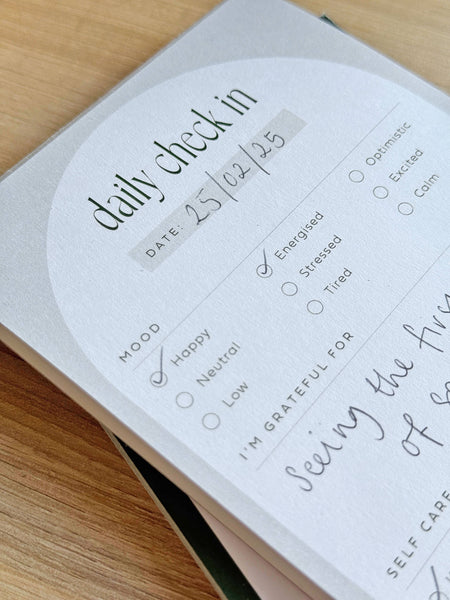 daily check in
DATE: 25/02/25
MOOD
Happy Energised Optimistic
Neutral Stressed Excited
Low Tired Calm
I'M GRATEFUL FOR
Seeing the
of
SELF CARE